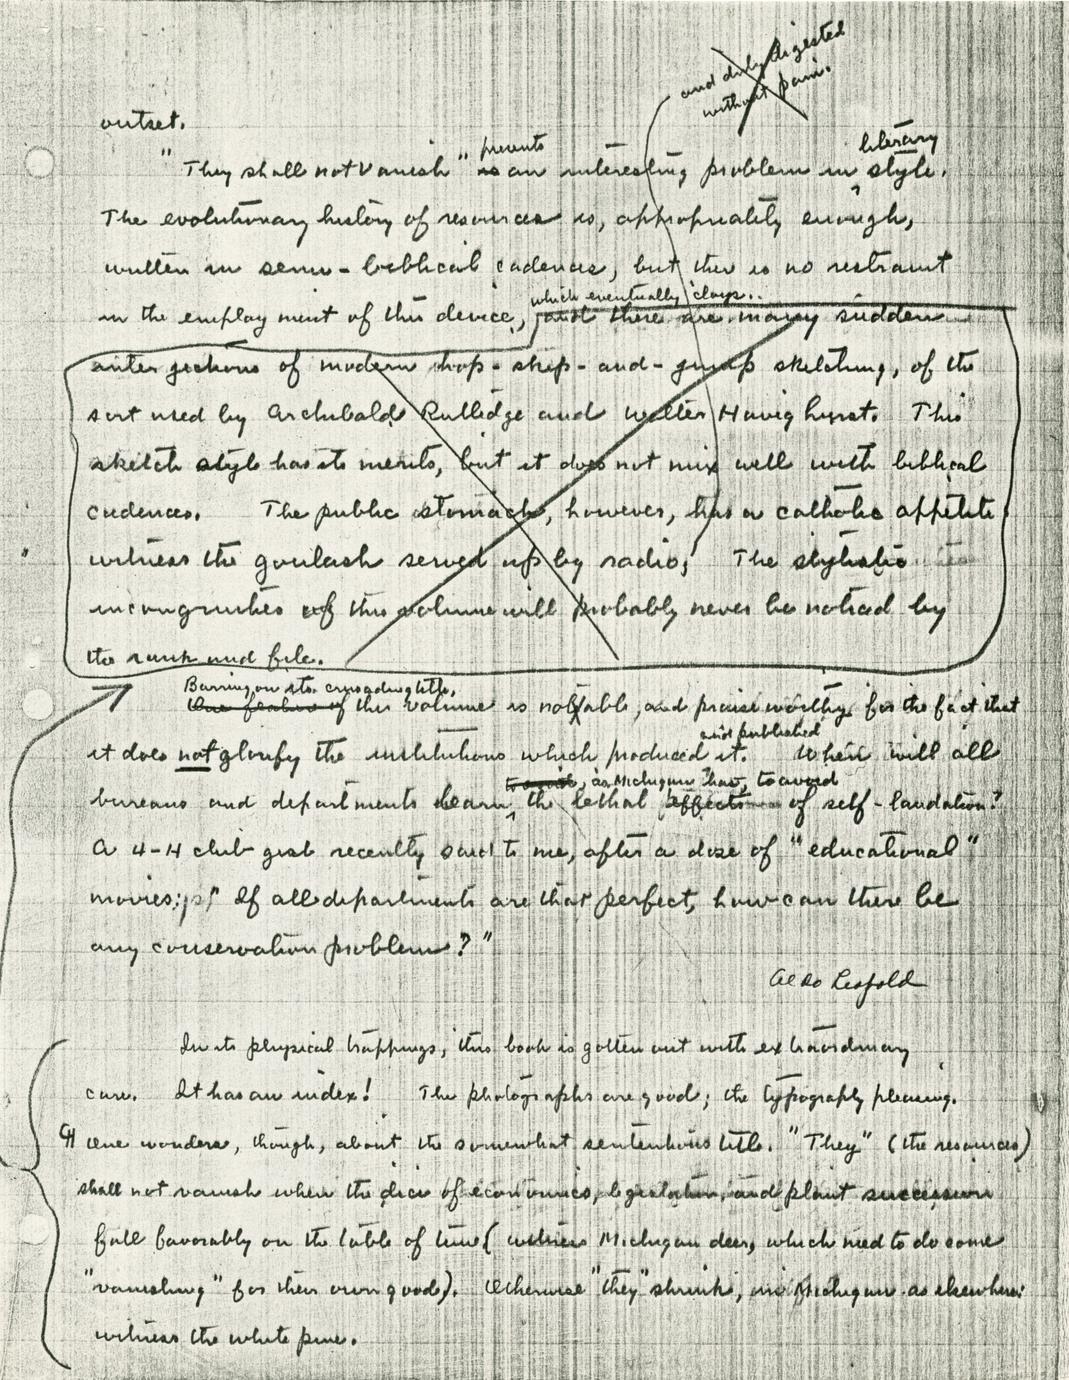 and duly digested
without pain.
outset.
presents literary
"They shall not Vanish" is an interesting problem in style.
The evolutionary history of resources is, appropriately enough,
written in semi-biblical cadences, but there is no restraint
which eventually cloys..
in the employment of this device, and there are many sudden
interjections of modern hop-skip-and-jump sketching, of the
sort used by Archibald Rutledge and Walter Havighurst. This
sketch style has its merits, but it does not mix well with biblical
cadences. The public stomach, however, has a catholic appetite
witness the goulash served up by radio; The stylistic
incongruities of this volume will probably never be noticed by
the rank and file.
Barring on its
One feature of this volume is notable, and praiseworthy for the fact that
and published
it does not glorify the institutions which produced it. When will all
to avoid, as Michigan has, to avoid
bureaus and departments learn the lethal effects of self-laudation?
A 4-H club gist recently said to me, after a dose of "educational"
movies: "If all departments are that perfect, how can there be
any conservation problem?"
Aldo Leopold
In its physical trappings, this book is gotten out with extraordinary
care. It has an index! The photographs are good; the typography pleasing.
¶ One wonders, though, about the somewhat sententious title. "They" (the resources)
shall not vanish when the dice of economics, legislation, and plant succession
fall favorably on the table of time (witness Michigan deer, which need to do some
"vanishing" for their own good). Otherwise "they" shrink, in Michigan as elsewhere:
witness the white pine.